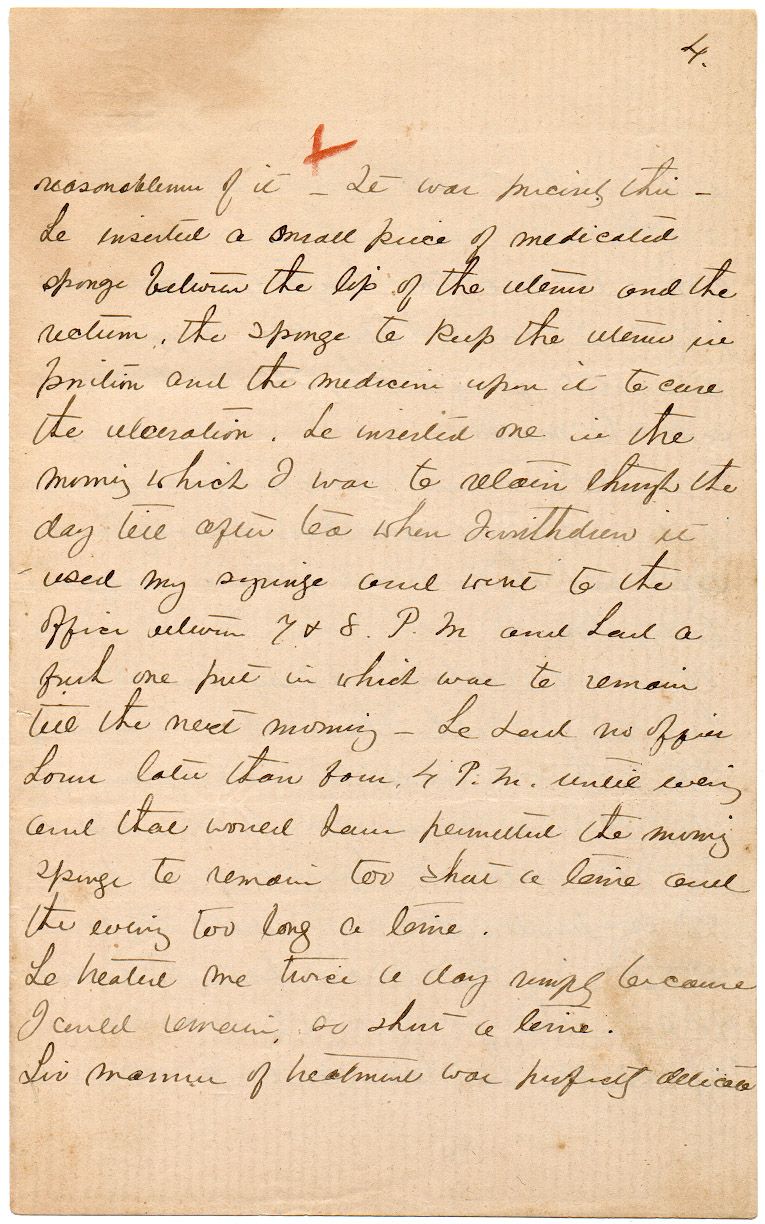 4.
reasonableness of it – It was precisely this –
He inserted a small piece of medicated
sponge between the lip of the uterus and the
rectum, the sponge to keep the uterus in
position and the medicine upon it to cure
the ulceration. He inserted one in the
morning which I was to retain through the
day till after tea when I withdrew it
used my syringe and went to the
office between 7 & 8. P. M and had a
fresh one put in which was to remain
till the next morning – He had no office
hour later than four, 4 P. M. until evening
and that would have permitted the morning
sponge to remain too short a time and
the evening too long a time.
He treated me twice a day simply because
I could remain so short a time.
His manner of treatment was perfectly delicate